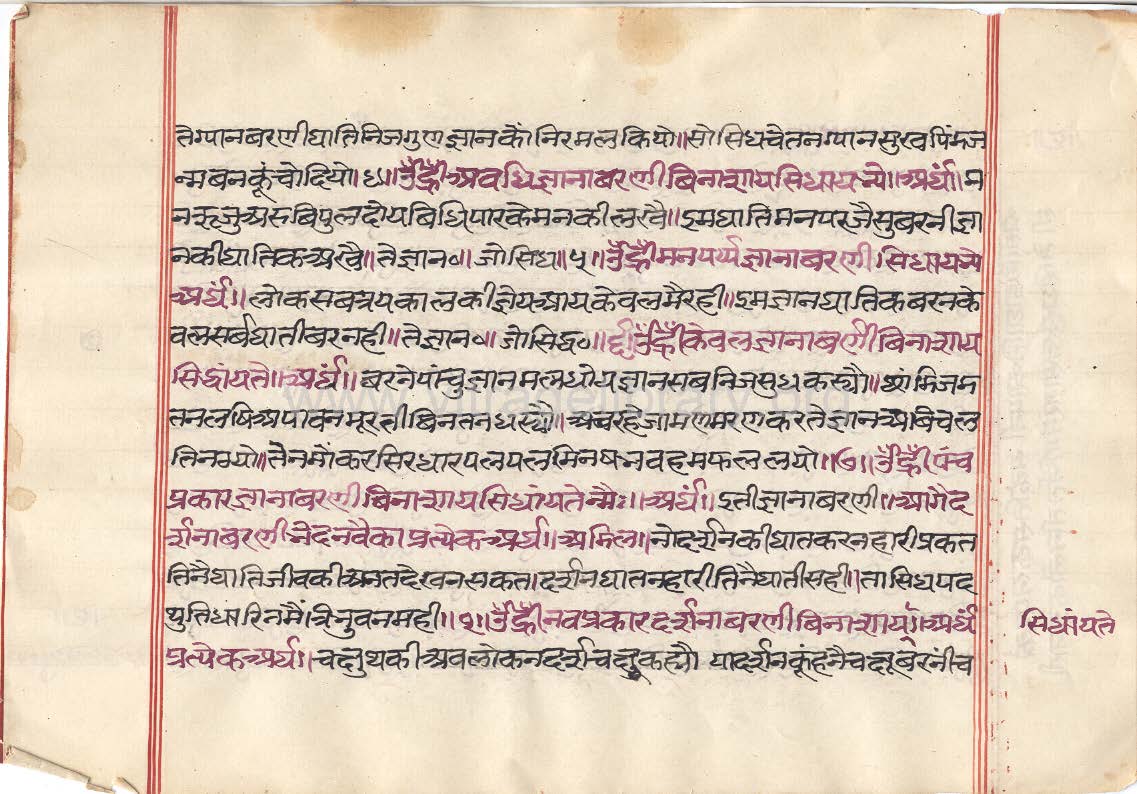 तेग्यानबरणीघातिनिजगुणज्ञानकौंनिरमलकियो॥सोसिधचेतनग्यानसुखपिंमज
न्मबनकूंचोदियो॥४॥ॐह्रीँअवधिज्ञानाबरणीबिनाशायसिधायन्मे॥अर्घं॥म
नरूजुअरुबिपुलदोयबिधिपारकेमनकीलखै॥इमघातिमनपरजैसुबरनीज्ञा
नकीघातिकअखै॥तेज्ञान०॥जोसिध॥५॥ॐह्रीँमनपर्ययज्ञानाबरणीसिधायन्मे
अर्घं॥लोकसबत्रयकालकीज्ञेयआयकेवलमैरही॥इमज्ञानघातिकबरनके
वलसर्बघातीबरनही॥तेज्ञान०॥जोसिद्ध०॥६॥ॐह्रीँकेवलज्ञानाबर्णीबिनाशाय
सिद्धायते॥अर्घं॥बरनेपांचुज्ञानमलधोयज्ञानसबनिजसुधकस्यौ॥
तिनग्यो॥तैनमौंकरसिरधारपलपलमिनषनवहमफललयो॥७॥ॐह्रीँपंच
प्रकारज्ञानाबरणीबिनाशायसिधांयतेन्मैः॥अर्घं॥इतीज्ञानाबरणी॥आगैद
र्शनाबरणीनेदनवैकाप्रत्येकअर्घ॥अमिल॥नोदर्शनकीघातकरनहारीप्रकत
तिनैघातिजीवकीअनतदेखनसकत॥दर्शनघातनहारीतिनैघातीसही॥तासिधपद
थुतिधारिनमैंत्रिनुवनमही॥१॥ॐह्रीँनवप्रकारदर्शनाबरणीबिनाशाय॥अर्घं
सिधांयते
प्रत्येकअर्घ॥चक्षुथकीअवलोकनदर्शचक्षुकह्यौ यादर्शनकूंहनैचक्षूबरनींच